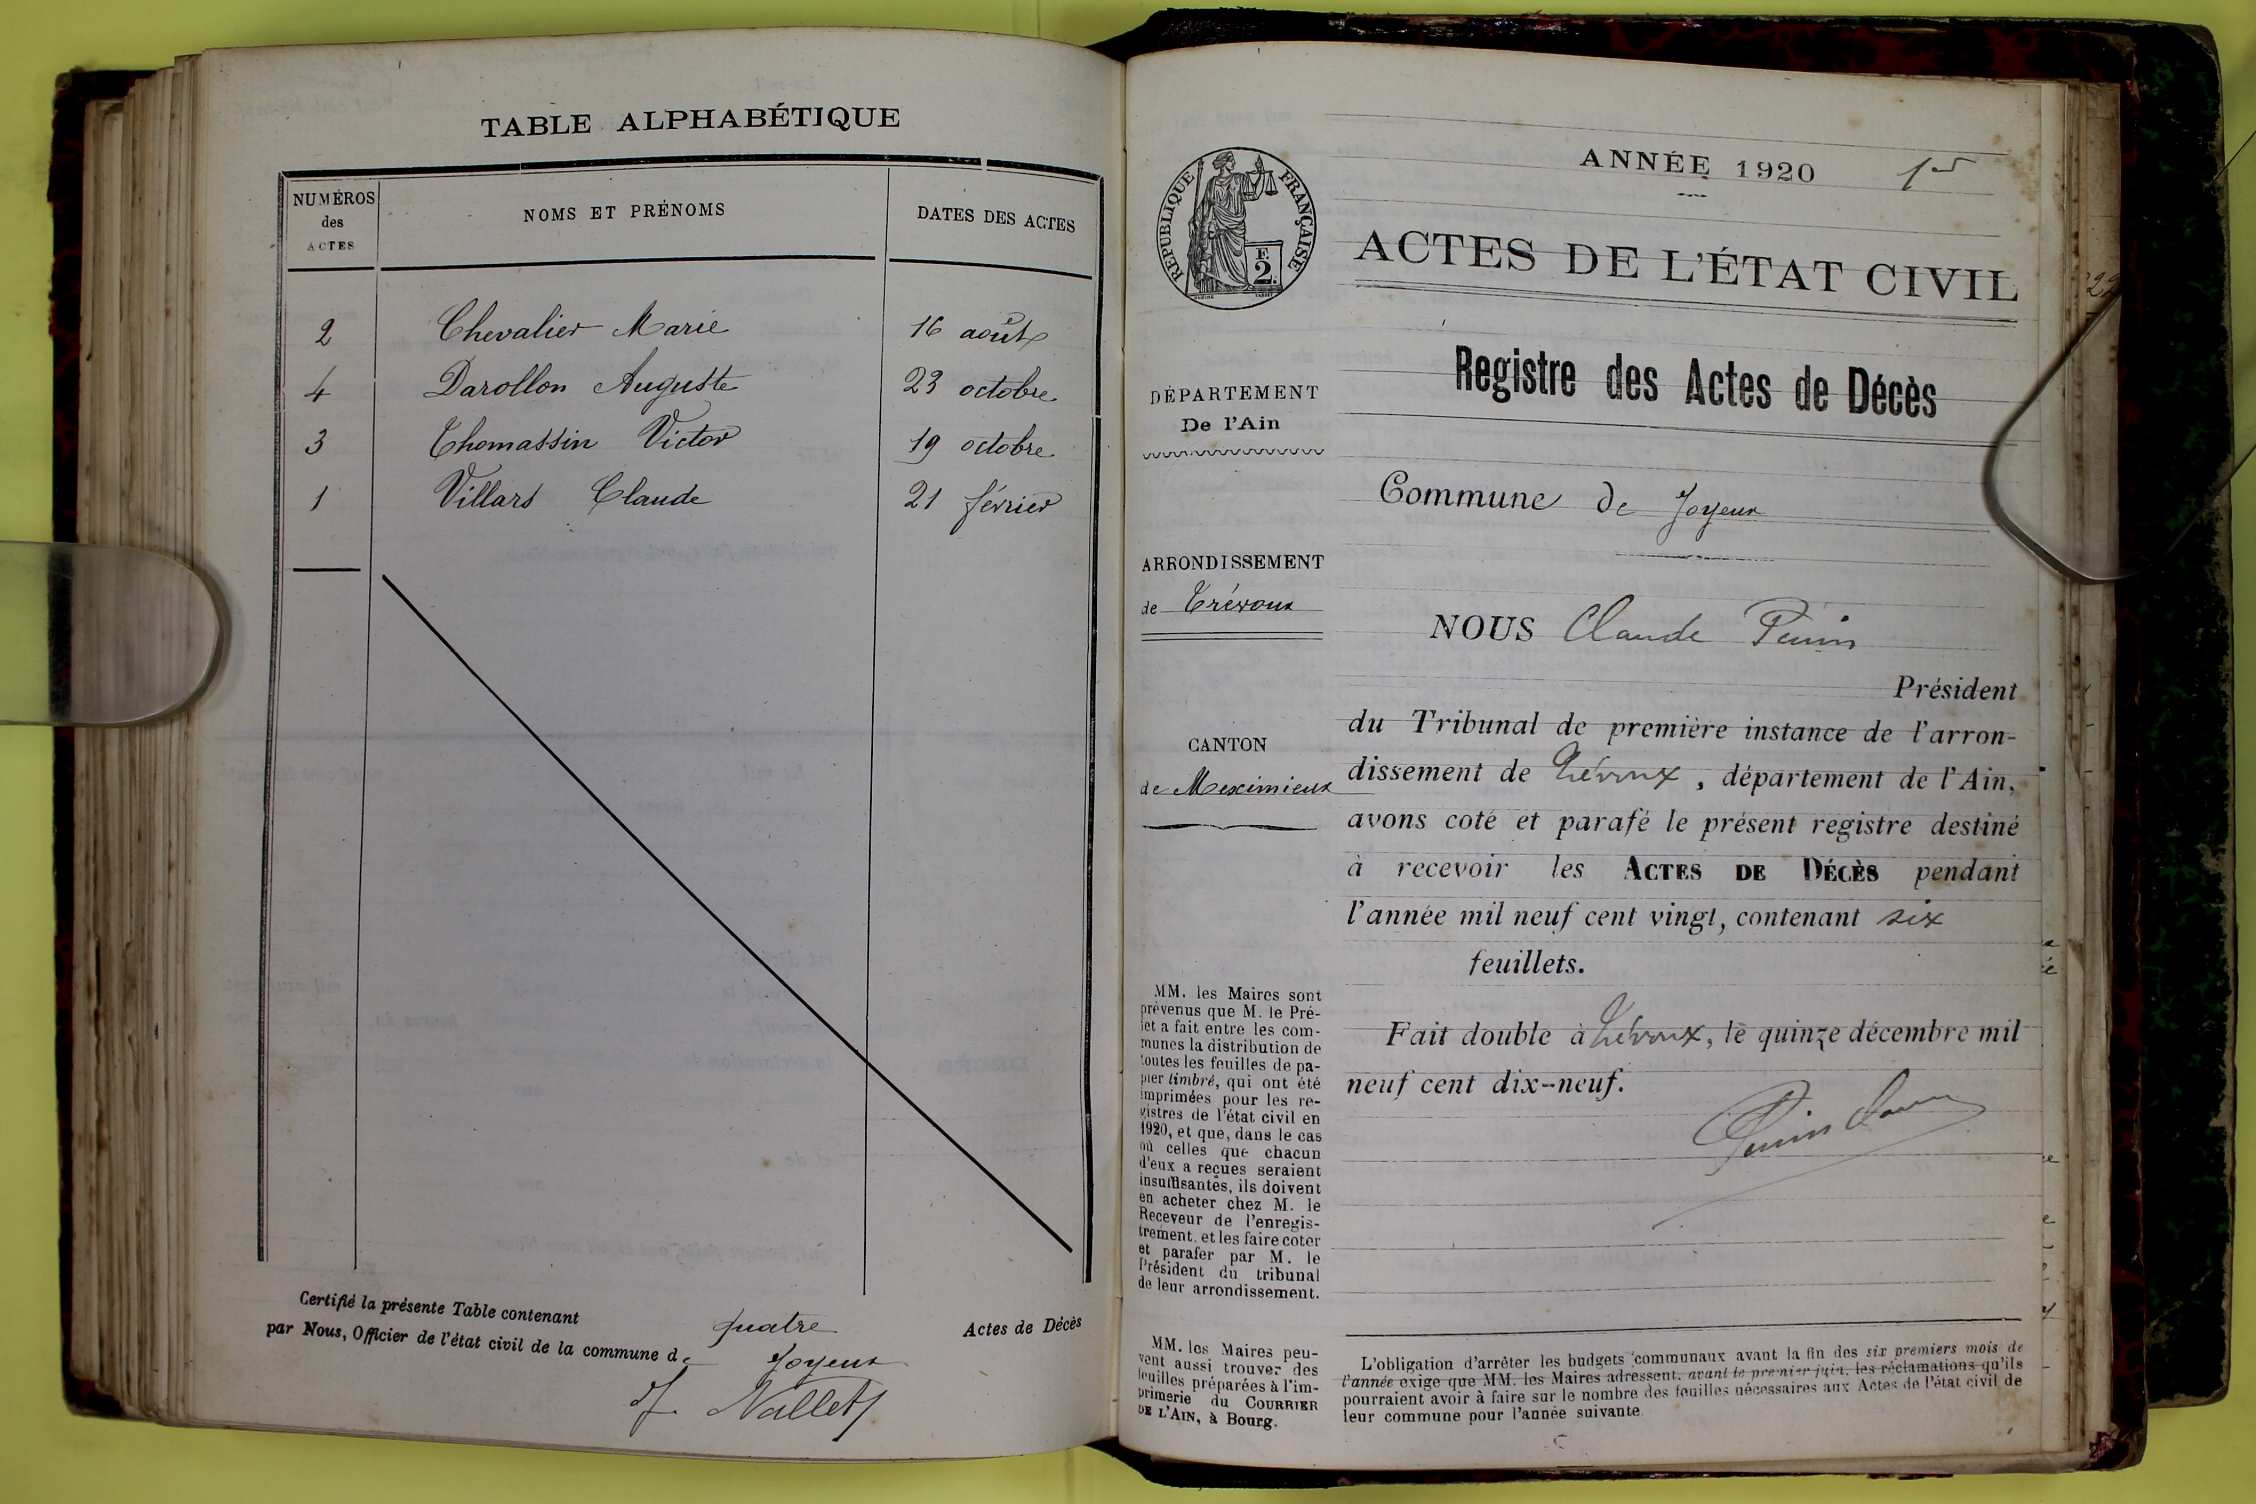 TABLE ALPHABÉTIQUE
NUMÉROS
des
ACTES
NOMS ET PRÉNOMS
DATES DES ACTES
2 Chevalier Marie 16 août
4 Darollon Auguste 23 octobre
3 Thomassin Victor 19 octobre
1 Villars Claude 21 février
Certifié la présente Table contenant quatre Actes de Décès
par Nous, Officier de l'état civil de la commune de Joyeux
Nallet
ANNÉE 1920 1er
RÉPUBLIQUE FRANÇAISE
F.
2.
ACTES DE L'ÉTAT CIVIL
Registre des Actes de Décès
DÉPARTEMENT
De l'Ain
Commune de Joyeux
ARRONDISSEMENT
de Trévoux
NOUS Claude
Président
du Tribunal de première instance de l'arron-
CANTON
de Meximieux
dissement de Trévoux, département de l'Ain,
avons coté et parafé le présent registre destiné
à recevoir les ACTES DE DÉCÈS pendant
l'année mil neuf cent vingt, contenant six
feuillets.
Fait double à Trévoux, le quinze décembre mil
neuf cent dix-neuf.
MM. les Maires sont
prévenus que M. le Pré-
fet a fait entre les com-
munes la distribution de
toutes les feuilles de pa-
pier timbré, qui ont été
imprimées pour les re-
gistres de l'état civil en
1920, et que, dans le cas
où celles que chacun
d'eux a reçues seraient
insuffisantes, ils doivent
en acheter chez M. le
Receveur de l'enregis-
trement, et les faire coter
et parafer par M. le
Président du tribunal
de leur arrondissement.
MM. les Maires peu-
vent aussi trouver des
feuilles préparées à l'im-
primerie du COURRIER
DE L'AIN, à Bourg.
L'obligation d'arrêter les budgets communaux avant la fin des six premiers mois de
l'année exige que MM. les Maires adressent, avant le premier juin, les réclamations qu'ils
pourraient avoir à faire sur le nombre des feuilles nécessaires aux Actes de l'état civil de
leur commune pour l'année suivante.